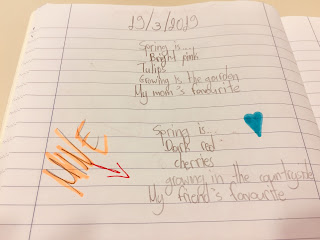 19/3/2019
Spring is...
Bright pink
Tulips
Growing is the garden
My mom's favourite
MINE
Spring is...
Dark red
cherries
growing in the countryside
My friend's favourite